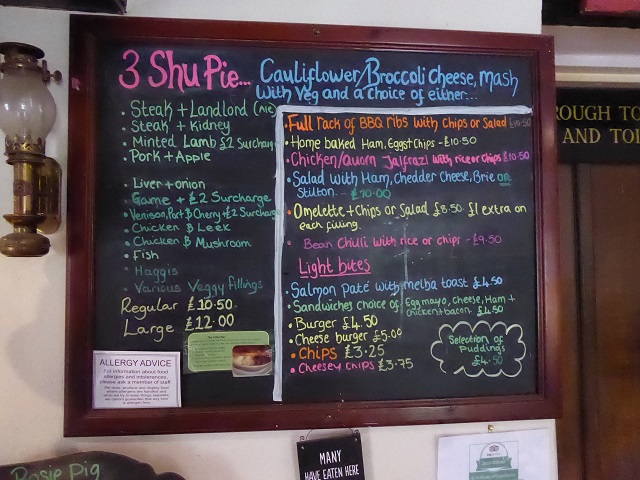 3 Shu Pie... Cauliflower/Broccoli Cheese, Mash
With Veg and a choice of either...
• Steak + Landlord (Ale)
• Steak + Kidney
• Minted Lamb £2 Surcharge
• Pork + Apple
• Liver + onion
• Game + £2 Surcharge
• Venison, Port & Cherry + £2 Surcharge
• Chicken & Leek
• Chicken & Mushroom
• Fish
• Haggis
• Various Veggy fillings
Regular £10.50
Large £12.00
• Full rack of BBQ ribs with Chips or Salad
• Home baked Ham, Eggs + Chips - £10.50
• Chicken/Quorn Jalfrazi with rice or chips £10.50
• Salad with Ham, Chedder Cheese, Brie or
Stilton. - £10.00
• Omelette + Chips or Salad £8.50 £1 extra on
each filling.
• Bean Chilli with rice or chips - £9.50
Light bites
• Salmon Paté with melba toast £4.50
• Sandwiches choice of Egg mayo, Cheese, Ham +
Chicken + bacon £4.50
• Burger £4.50
• Cheese burger £5.00
• Chips £3.25
• Cheesey Chips £3.75
Selection of
Puddings
£4.50
ALLERGY ADVICE
For information about food
allergies and intolerances,
please ask a member of staff
ROUGH TO
AND TO
Rosie Pig
MANY
HAVE EATEN HERE